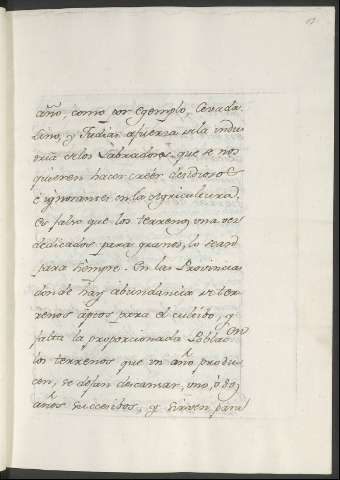 año, como por egemplo, Cevada,
Lino, y Judias afuerza de la indus
tria de los Labradores que se nos
quieren hacer creer desidiosos
e ignorantes en la Agricultura.
Es falso que los terrenos una vez
dedicados para granos, lo sean
para siempre. En las Provincias
donde hay abundancia de ter-
renos aptos para el cultibo, y
falta la proporcionada Poblacion
los terrenos que un año produ-
cen, se dejan descansar, uno, ó dos
años succesibos, y sirven para